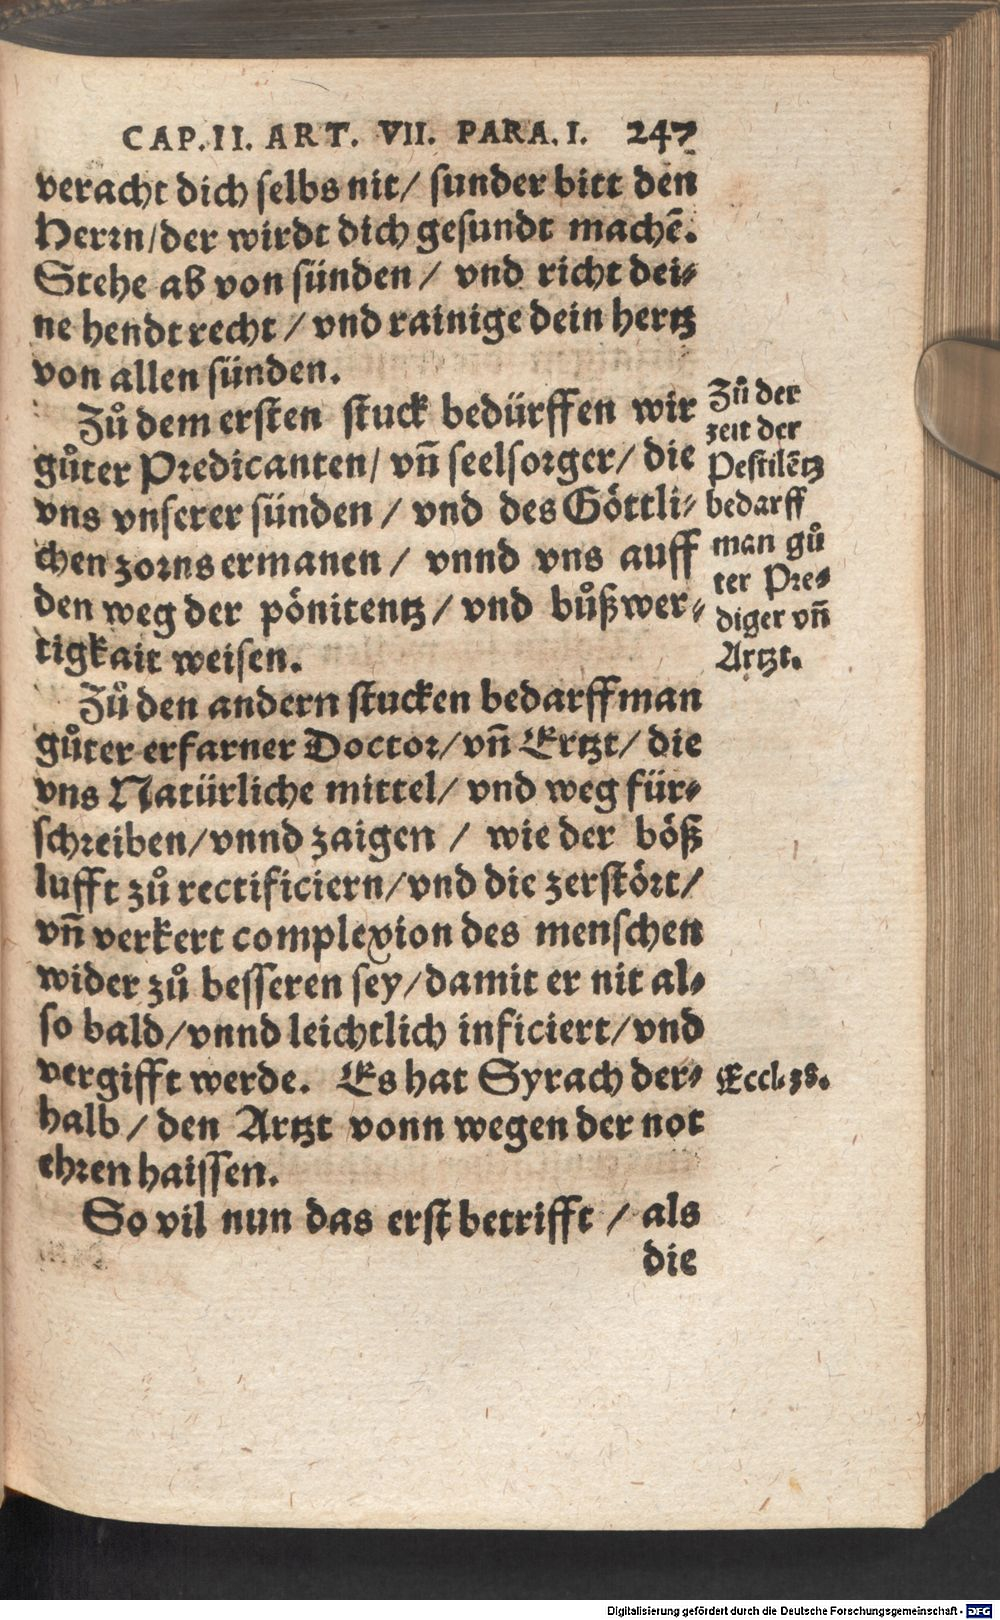 CAP. II. ART. VII. PARA. I. 247
veracht dich selbs nit/ sunder bitt den
Herrn/der wirdt dich gesundt machē.
Stehe ab von sünden / vnd richt dei⸗
ne hendt recht / vnd rainige dein hertz
von allen sünden.
Zů dem ersten stuck bedürffen wir
gůter Predicanten/ vn̄ seelsorger/ die
vns vnserer sünden / vnd des Göttli⸗
chen zorns ermanen / vnnd vns auff
den weg der pönitentz / vnd bůßwer⸗
tigkait weisen.
Zů der
zeit der
Pestilētz
bedarff
man gů
ter Pre⸗
diger vn̄
Artzt.
Zů den andern stucken bedarff man
gůter erfarner Doctor/ vn̄ Ertzt/ die
vns Natürliche mittel/ vnd weg für⸗
schreiben/vnnd zaigen / wie der böß
lufft zů rectificiern/vnd die zerstört/
vn̄ verkert complexion des menschen
wider zů besseren sey/damit er nit al⸗
so bald/vnnd leichtlich inficiert/vnd
vergifft werde. Es hat Syrach der⸗
halb / den Artzt vonn wegen der not
ehren haissen.
Eccl. 38.
So vil nun das erst betrifft / als
die
Digitalisierung gefördert durch die Deutsche Forschungsgemeinschaft - DFG